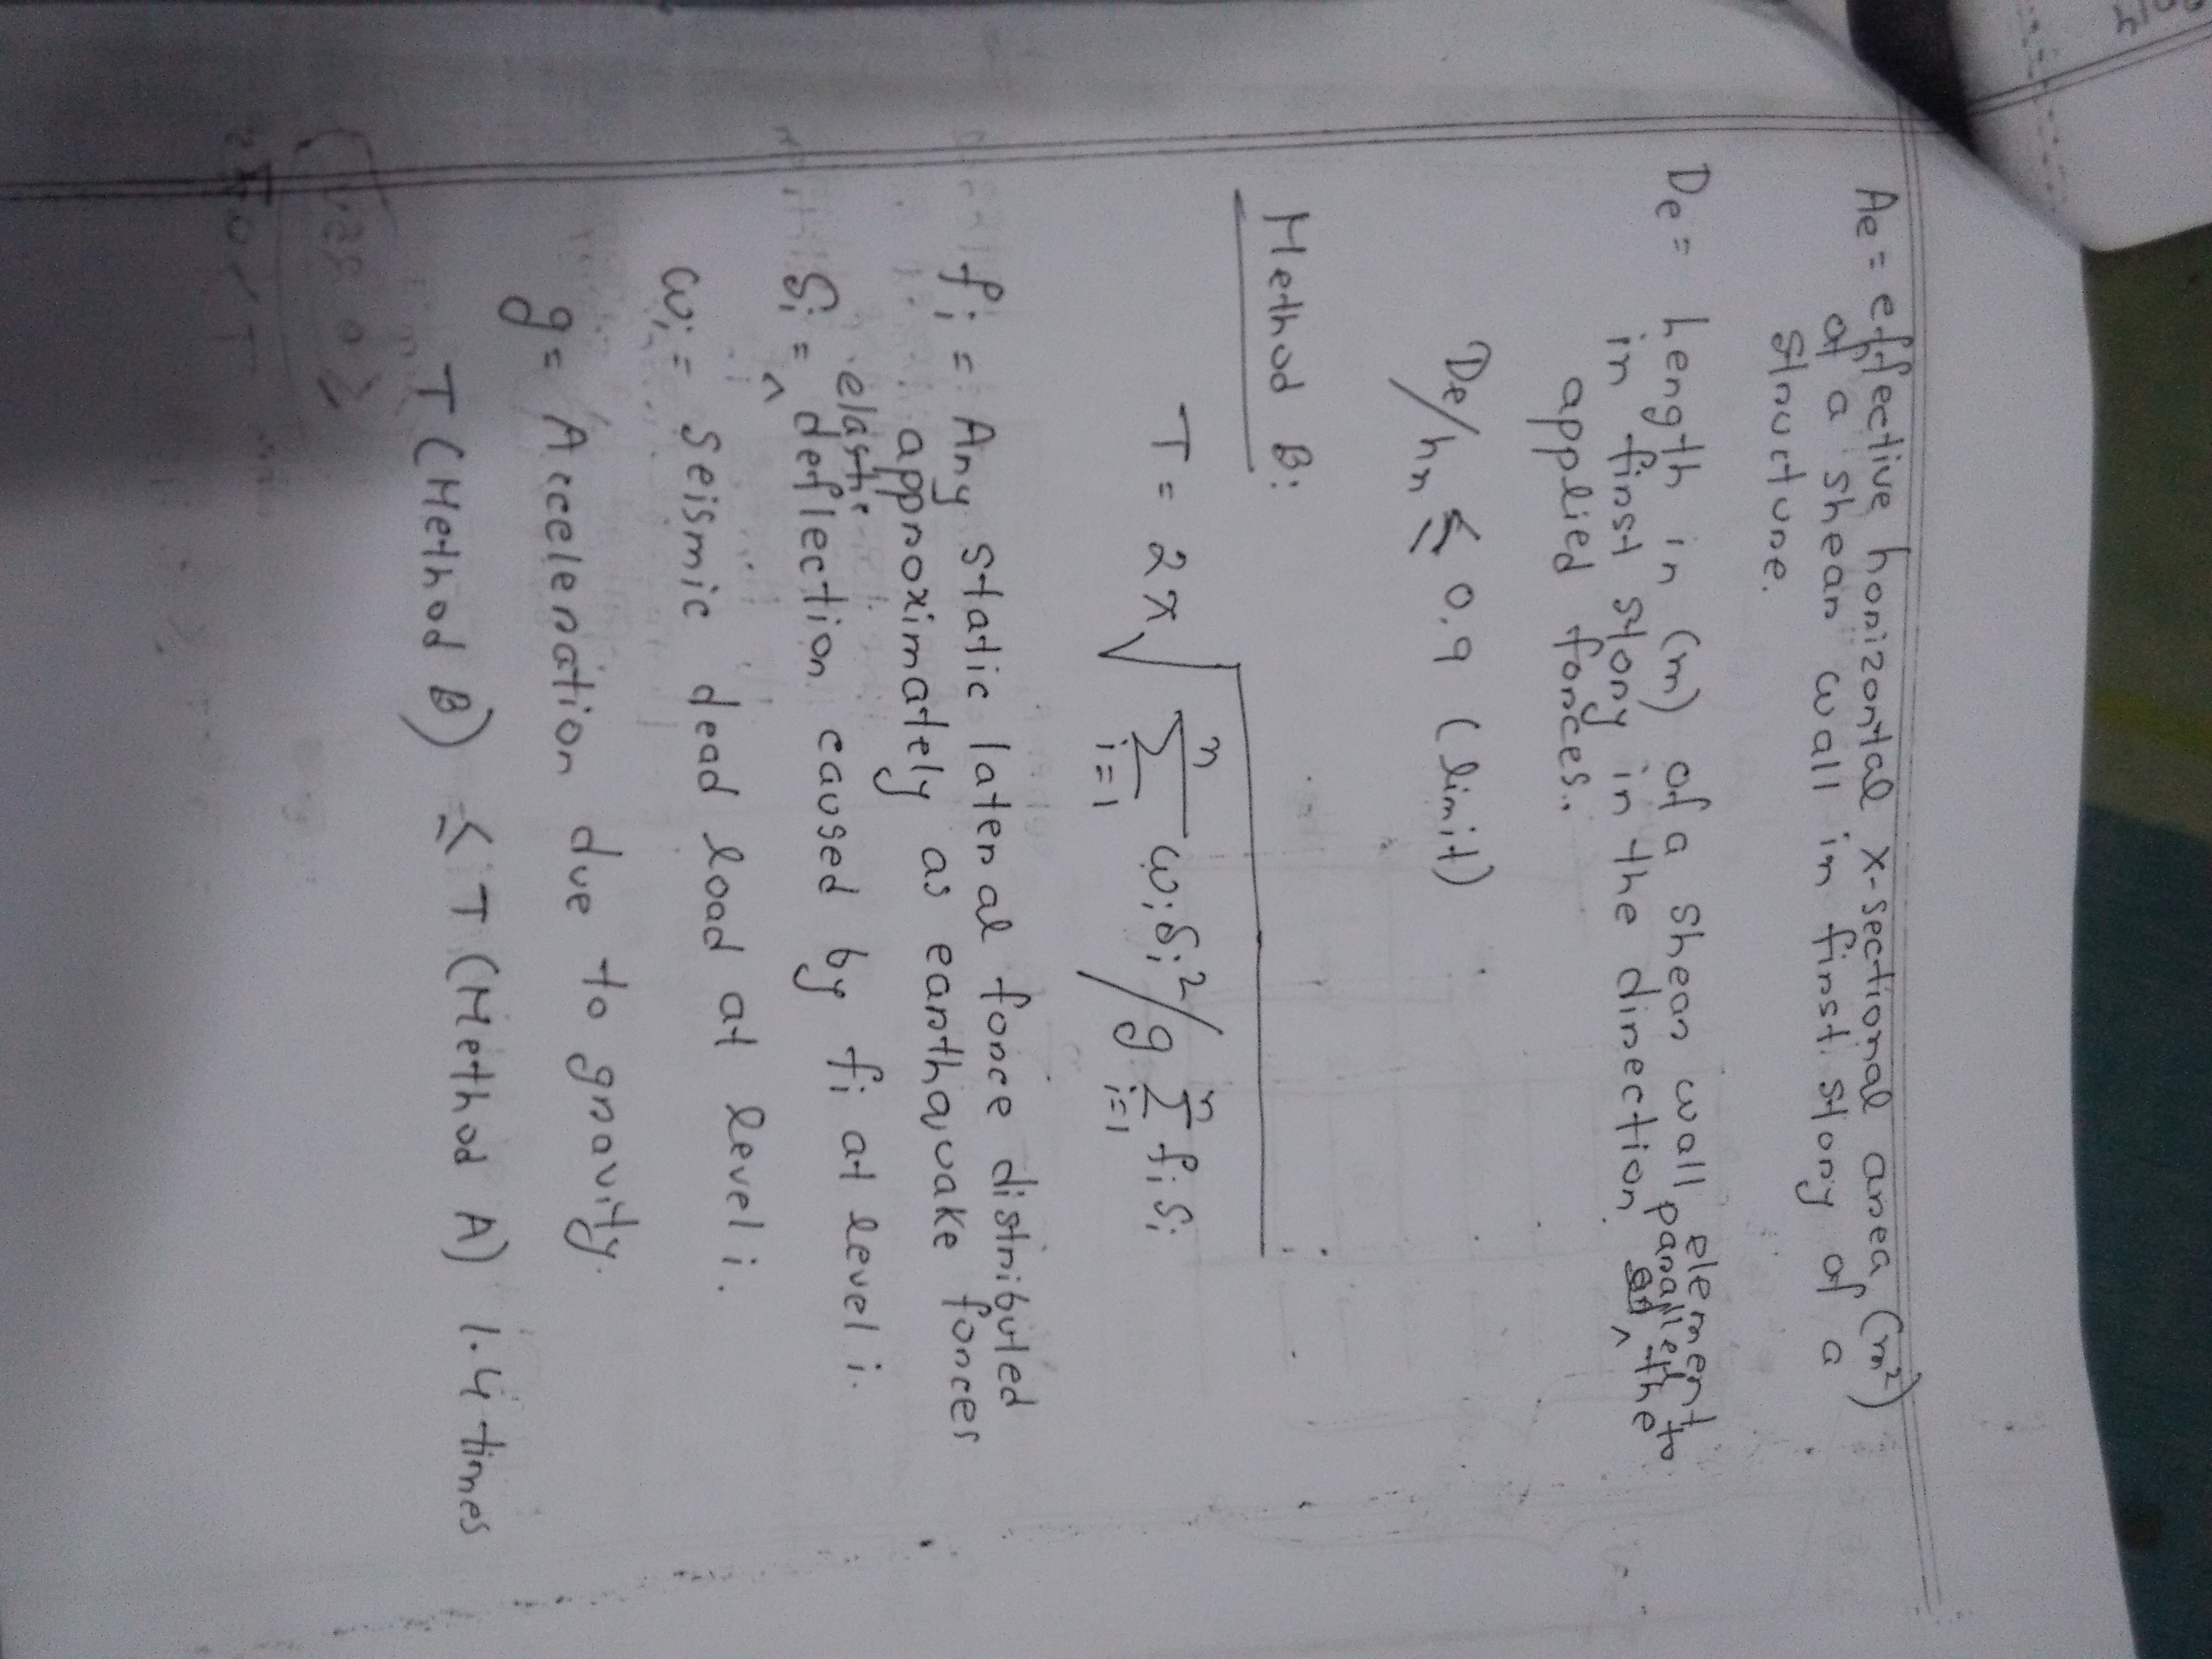 Ae = effective horizontal x-sectional area (m²)
of a shear wall in first story of a
structure.
De = Length in (m) of a shear wall element
in first story in the direction parallel to the
applied forces.
De/hn ≤ 0.9 (limit)
Method B:
T = 2π √ Σ(i=1 to n) wiδi² / g Σ(i=1 to n) fiδi
fi = Any static lateral force distributed
approximately as earthquake forces
δi = elastic deflection caused by fi at level i.
wi = Seismic dead load at level i.
g = Acceleration due to gravity.
T (Method B) ≤ T (Method A) 1.4 times